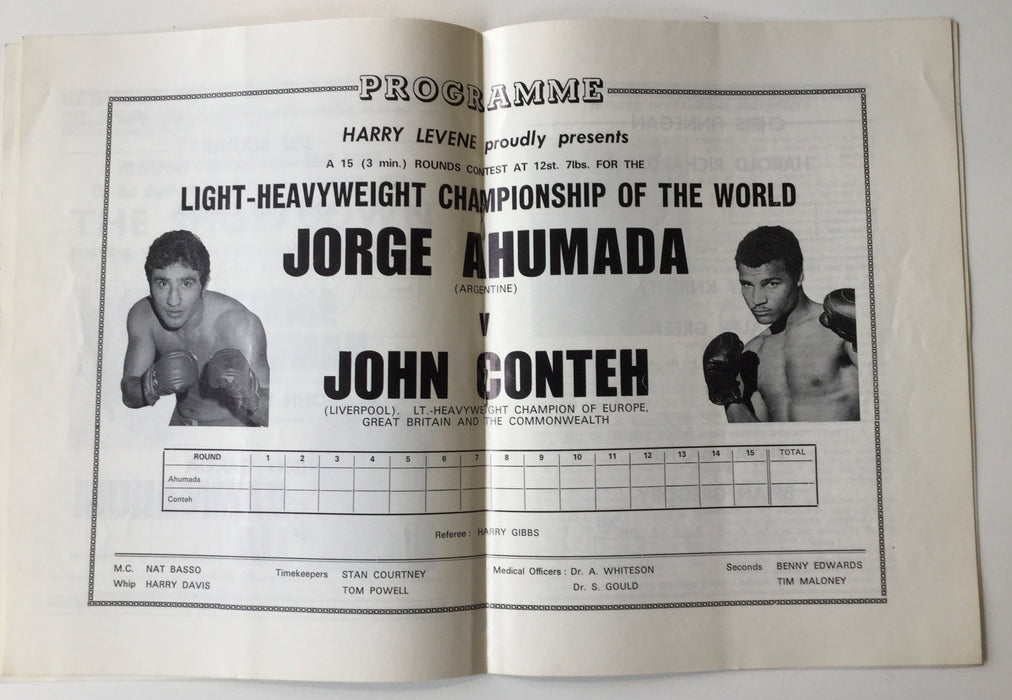 PROGRAMME
HARRY LEVENE proudly presents
A 15 (3 min.) ROUNDS CONTEST AT 12st. 7lbs. FOR THE
LIGHT-HEAVYWEIGHT CHAMPIONSHIP OF THE WORLD
JORGE AHUMADA
(ARGENTINE)
V
JOHN CONTEH
(LIVERPOOL). LT.-HEAVYWEIGHT CHAMPION OF EUROPE,
GREAT BRITAIN AND THE COMMONWEALTH
ROUND 1 2 3 4 5 6 7 8 9 10 11 12 13 14 15 TOTAL
Ahumada
Conteh
Referee : HARRY GIBBS
M.C. NAT BASSO
Whip HARRY DAVIS
Timekeepers STAN COURTNEY
TOM POWELL
Medical Officers : Dr. A. WHITESON
Dr. S. GOULD
Seconds BENNY EDWARDS
TIM MALONEY